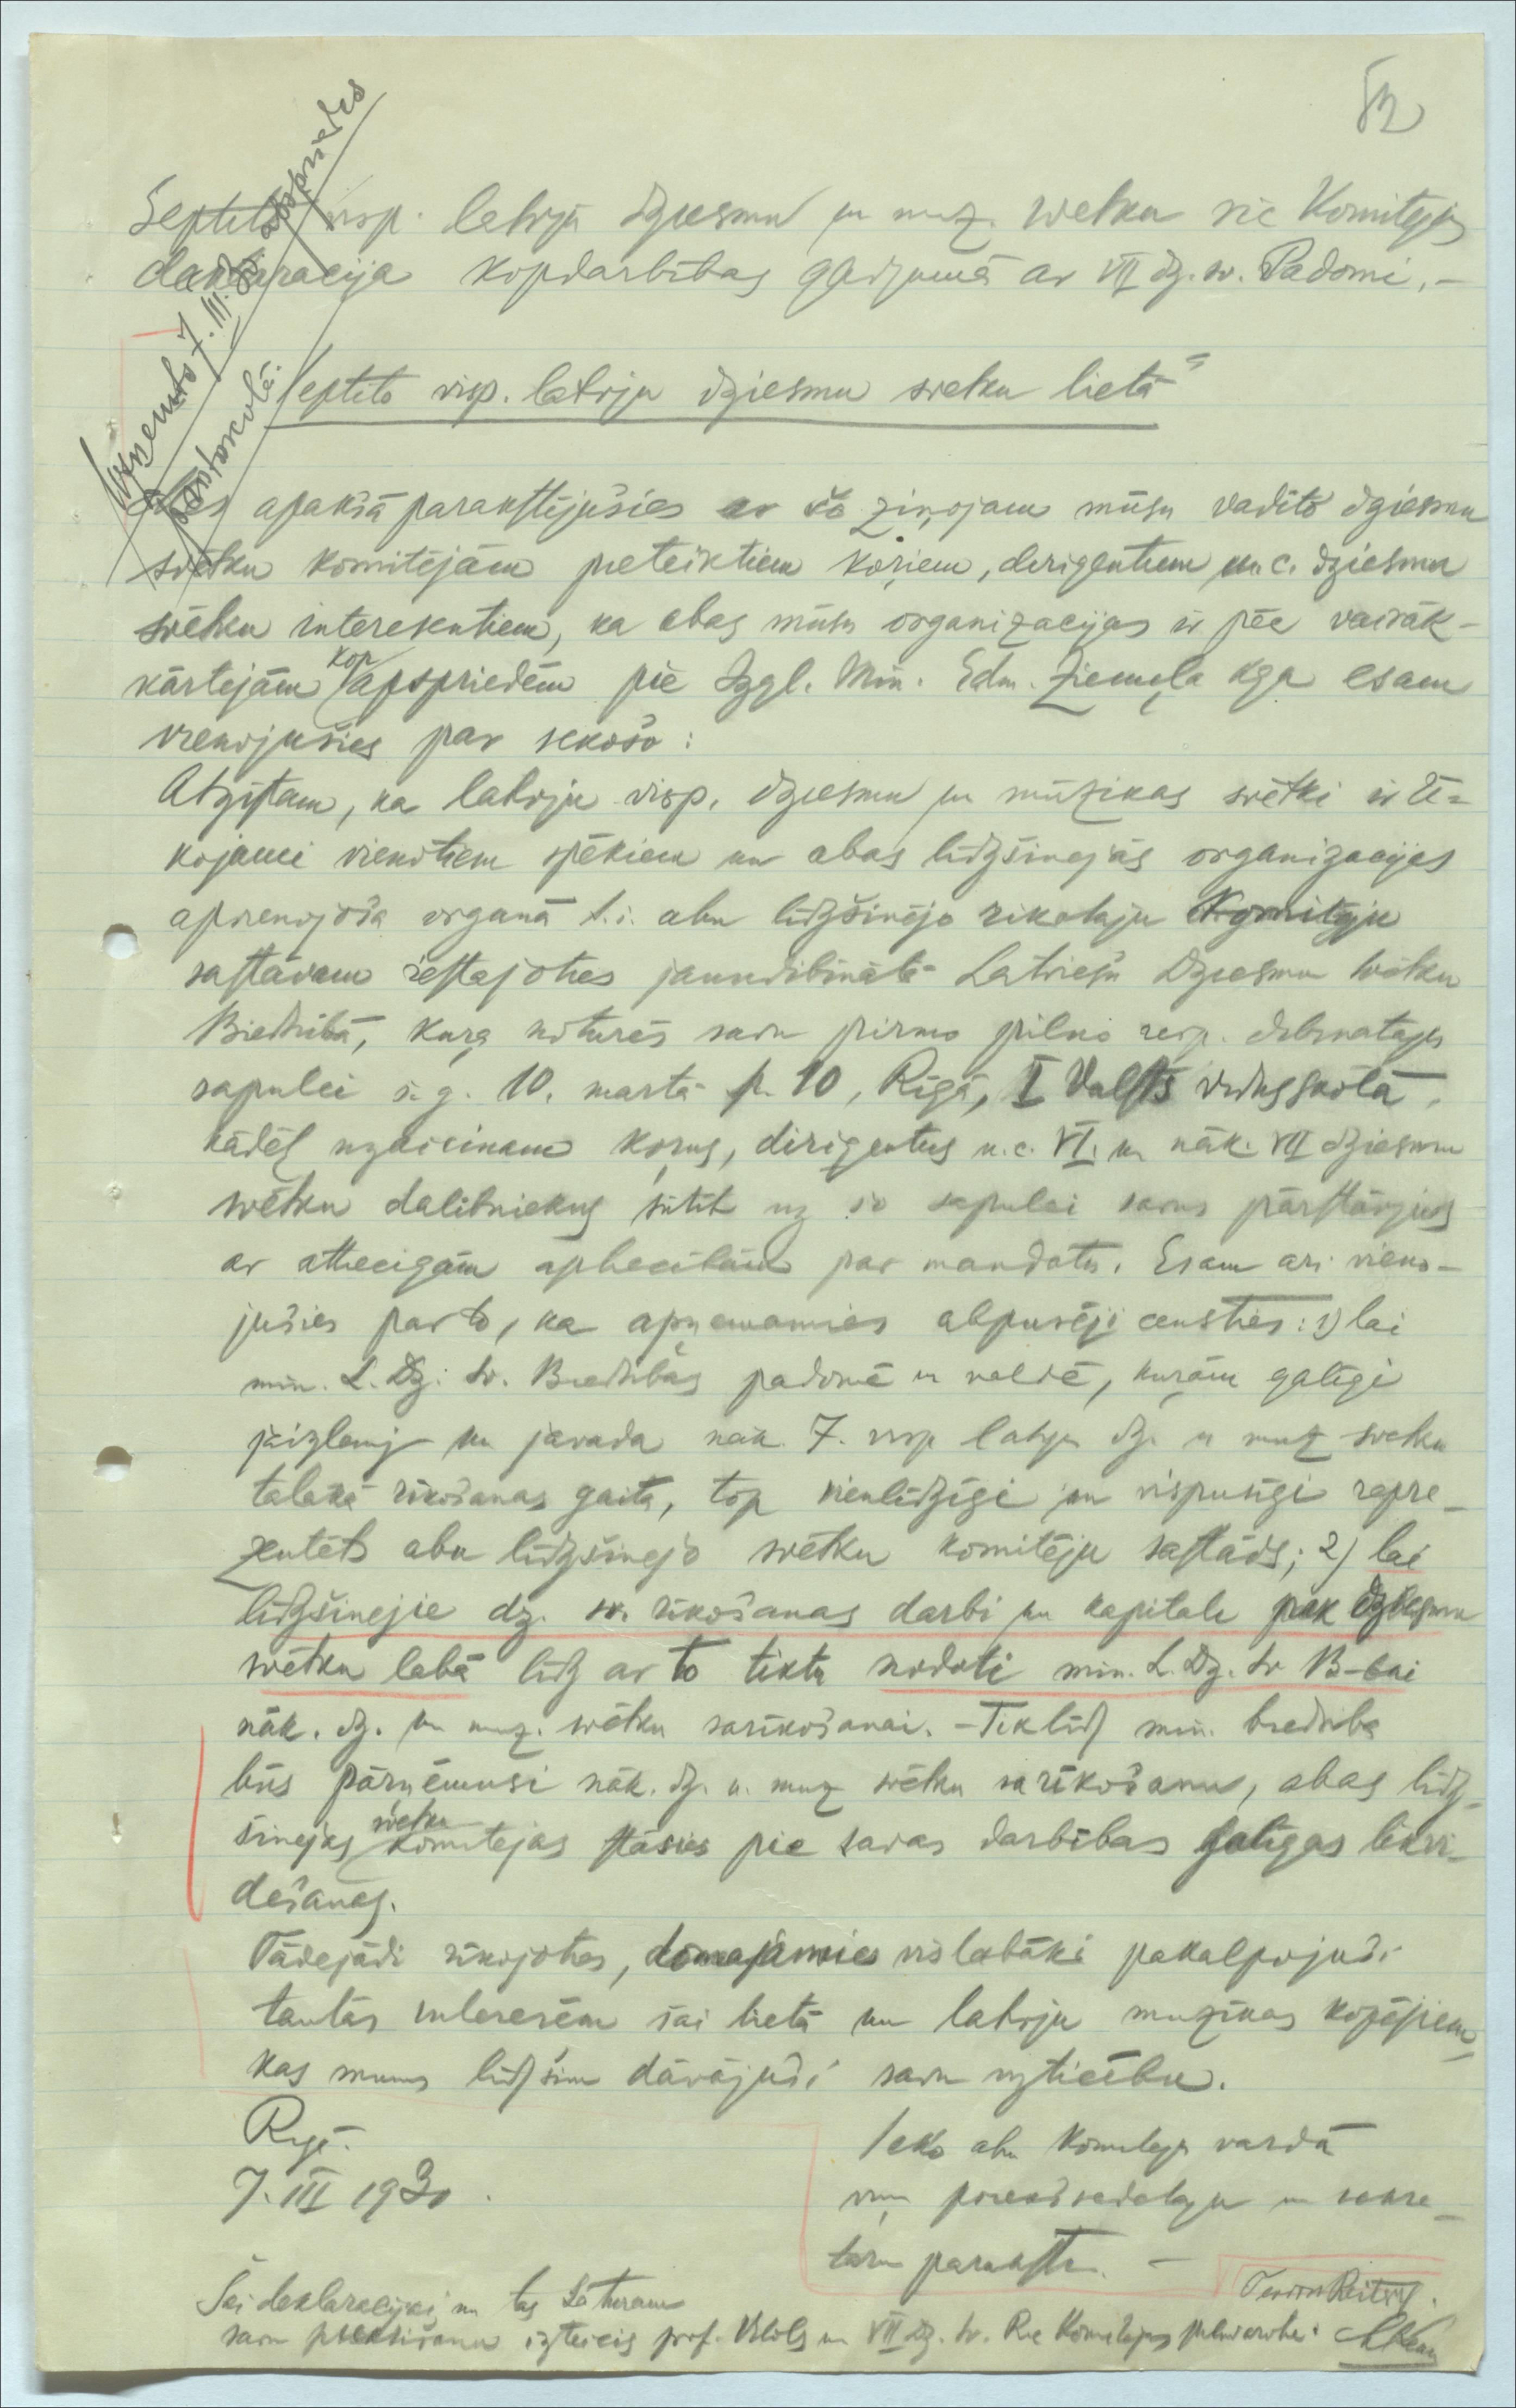 52
Septito visp. latvju dziesmu un muz. svetku ric Komitejas
deklaracija kopdarbibas gadijumā ar VII dz. sv. Padomi. -
Septito visp. latvju dziesmu svetku lietā
Mēs apakšā parakstijušies ar šo ziņojam mūsu vadito dziesmu
svētku komitējām pieteiktiem koŗiem, dirigentiem un c. dziesmu
svētku interesentiem, ka abas mūsu organizacijas ir pēc vairāk-
kārtejām kop apspriedēm pie Izgl. Min. Edm. Ziemeļa kga esam
vienojušies par sekošo:
Atzīstam, ka latvju visp. dziesmu un mūzikas svētki ir rī-
kojami vienotiem spēkiem un abas līdzšinejās organizacijas
apvienojošā organā t.i. abu līdzšinējo rikotaju Komiteju
sastāvam iestajoties jaundibinātā Latviešu Dziesmu Svētku
Biedribā, kuŗa noturēs savu pirmo pilno resp. dibinatāju
sapulci š. g. 10. martā p. 10, Rīgā, I Valsts vidusskolā,
kādēļ uzaicinam koŗus, dirigentus u. c. VI. un nāk. VII dziesmu
svētku dalibniekus sūtit uz šo sapulci savus pārstāvjus
ar attiecigām apliecībām par mandatu. Esam ari vieno-
jušies par to, ka apņemamies abpusēji censties: 1) lai
min. L. Dz. Sv. Biedribas padomē un valdē, kuŗām galigi
jāizlemj un javada nāk. 7. visp latvju dz. un muz svetku
talakā rikošanas gaita, top vienlīdzīgi un vispusīgi repre-
zentēts abu līdzšinejo svētku komitēju sastāvs; 2) lai
līdzšinejie dz. sv. rīkošanas darbi un kapitali nāk dziesmu
svētku labā līdz ar to tiktu nodoti min. L. Dz. Sv B-bai
nāk. dz. un muz. svētku sarīkošanai. - Tiklīdz min. biedriba
būs pārņēmusi nāk. dz. u. muz svētku sarīkošanu, abas līdz-
šinejās svetku komitejas stāsies pie savas darbības galīgas likvi-
dešanas.
Tādejādi rīkojoties, domajamies vislabāki pakalpojuši
tautas interesēm šai lietā un latvju muzikas kopējiem,
kas mums līdz šim dāvājuši savu uzticību.
Rigā.
7. III 1930.
Seko abu Komiteju vardā
viņu priekšsedetaju un sekre-
taru paraksti. -
Šai deklaracijai un tās saturam
savu piekrišanu izteicis prof. Vītols un VII Dz. Sv. Ric Komitejas pilnvarotie:
Teodors Reiters.
Uzņemts 7. III. 30 apspriedes
protokolā.